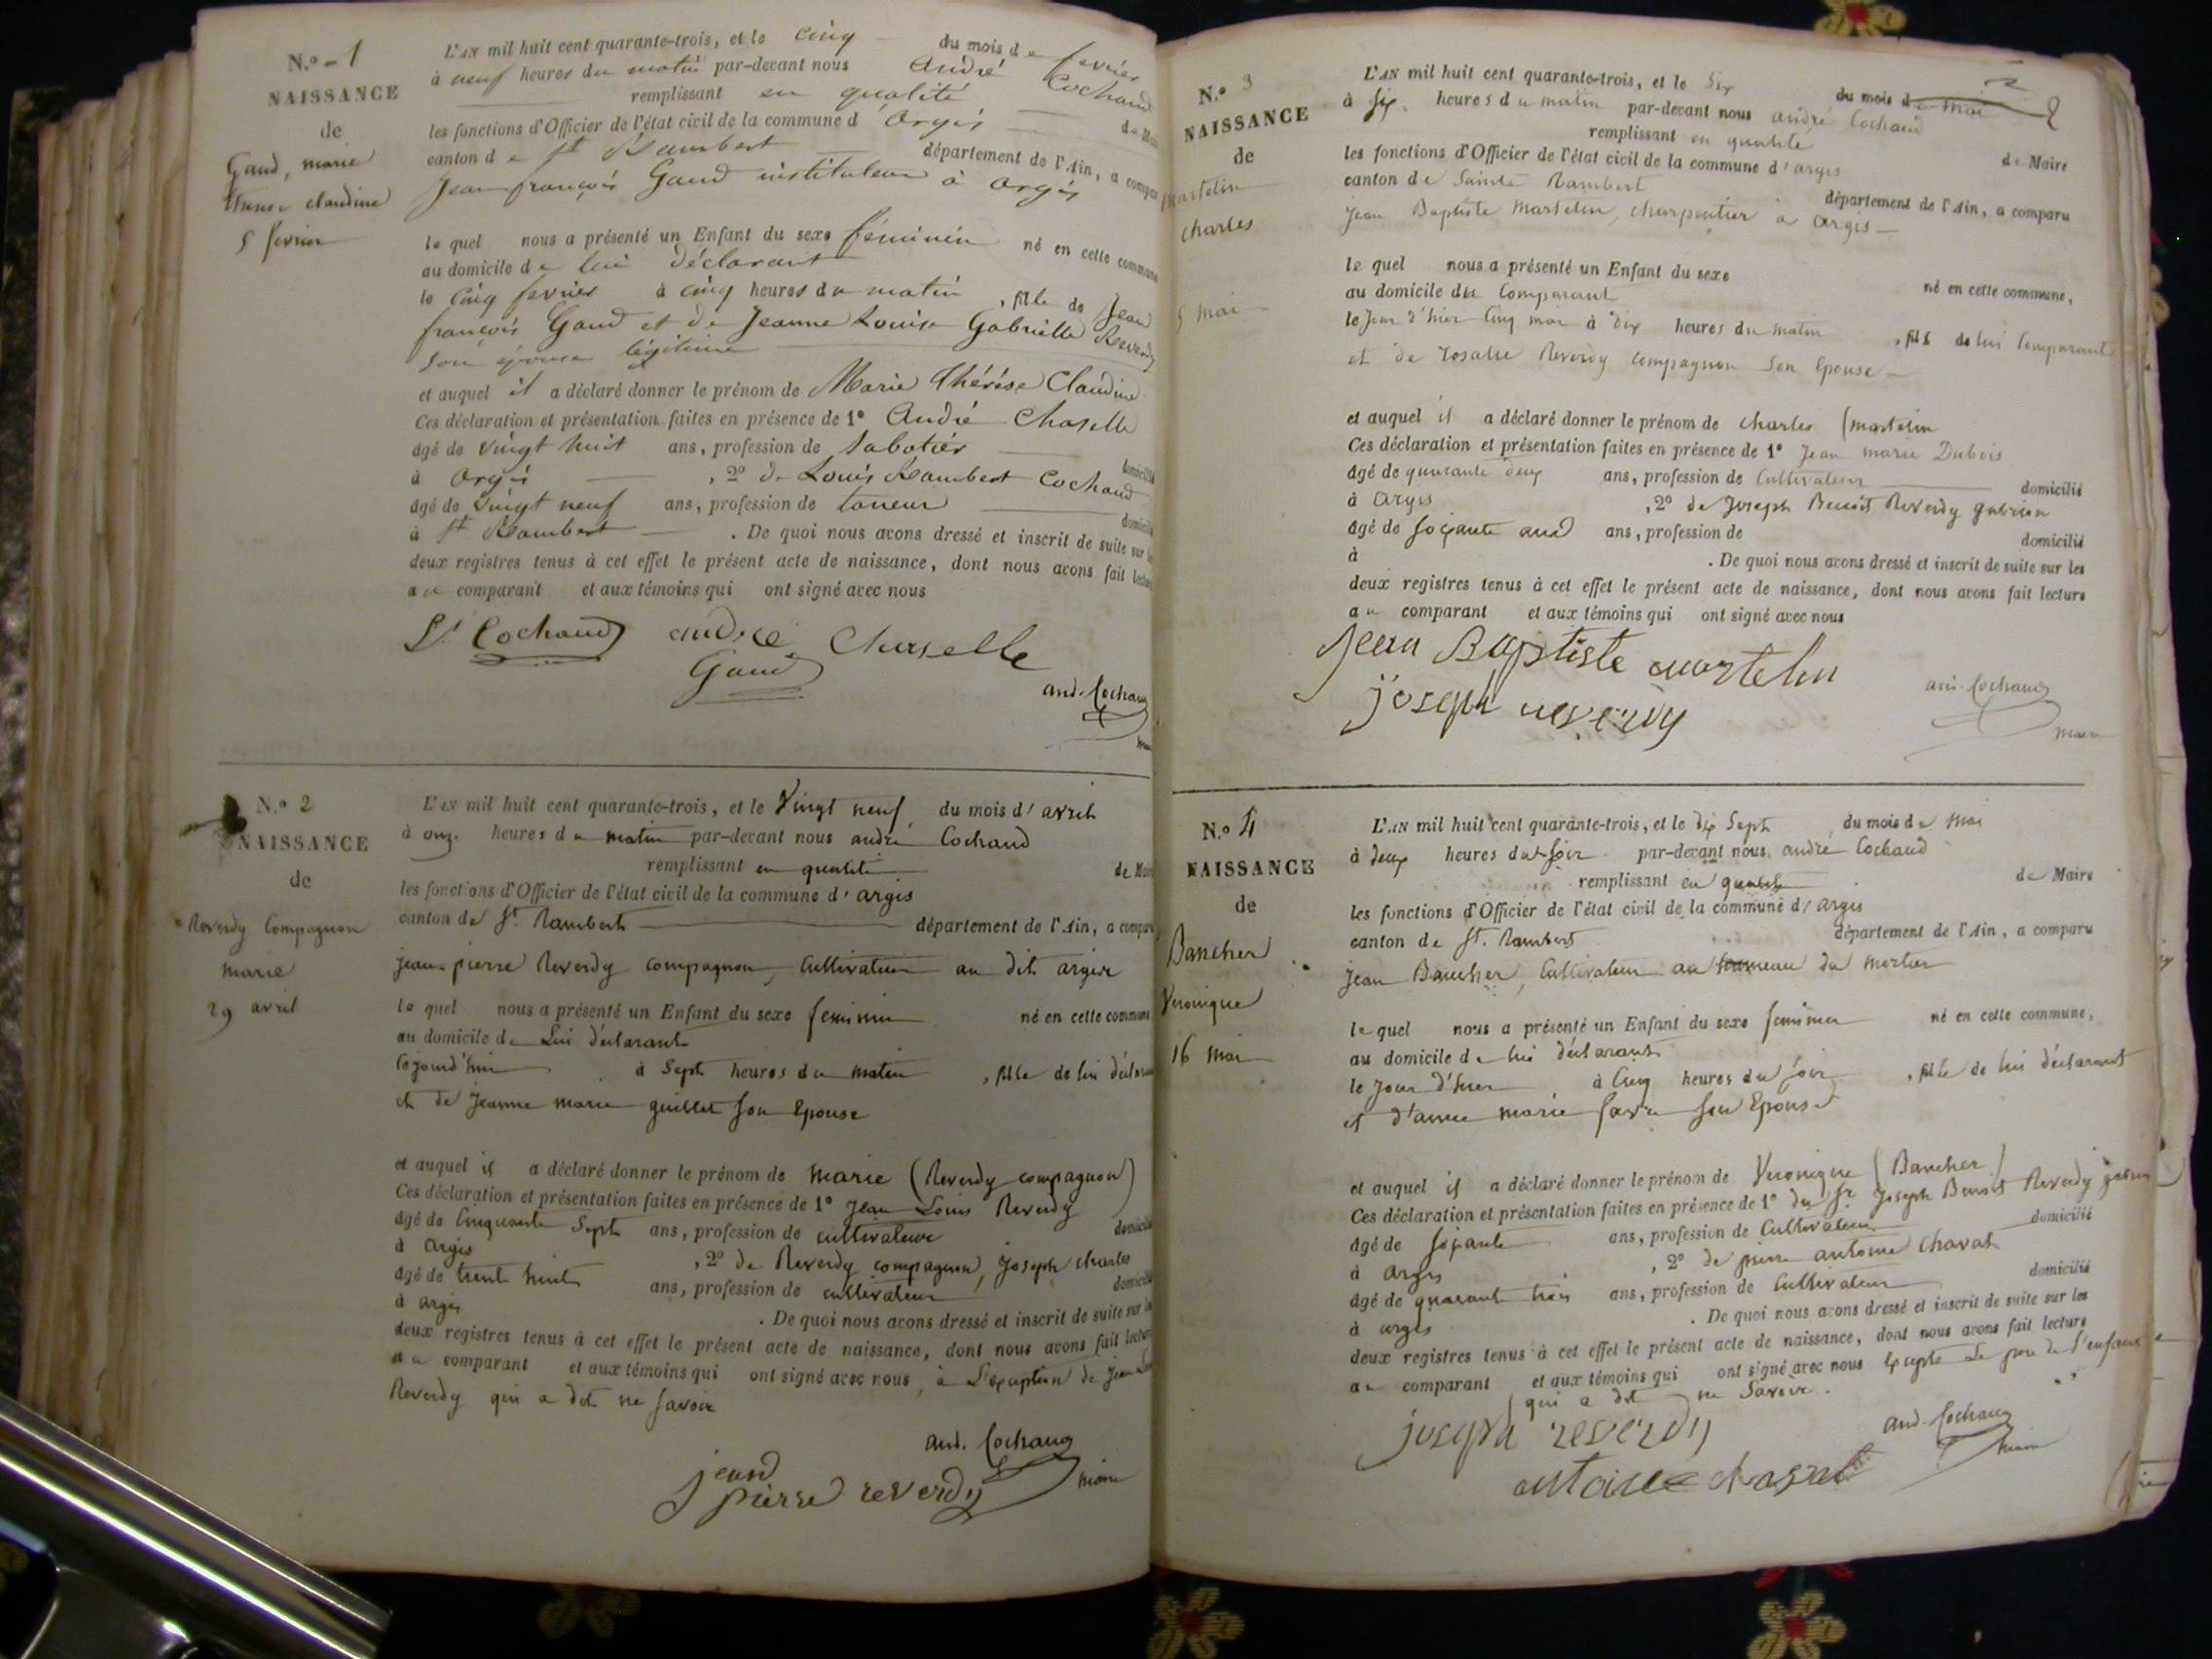 N.º 1
NAISSANCE
de
Gaud, marie
therese claudine
5 fevrier
L'AN mil huit cent quarante-trois, et le cinq du mois de fevrier
à neuf heures du matin par-devant nous André Cochaud
remplissant en qualité de Maire
les fonctions d'Officier de l'état civil de la commune d'Argis
canton de St Rambert département de l'Ain, a comparu
Jean françois Gaud instituteur à Argis
le quel nous a présenté un Enfant du sexe féminin né en cette commune
au domicile de lui déclarant
le cinq fevrier à cinq heures du matin, fille de Jean
françois Gaud et de Jeanne Louise Gabrielle Reverdy
son épouse légitime
et auquel il a déclaré donner le prénom de Marie Thérése Claudine
Ces déclaration et présentation faites en présence de 1º André Chaselle
âgé de vingt huit ans, profession de sabotier domicilié
à Argis, 2º de Louis Rambert Cochaud
âgé de vingt neuf ans, profession de taneur domicilié
à St Rambert. De quoi nous avons dressé et inscrit de suite sur les
deux registres tenus à cet effet le présent acte de naissance, dont nous avons fait lecture
au comparant et aux témoins qui ont signé avec nous
Lˢ Cochaud andre Charselle
Gaud
and. Cochaud
N.º 2
NAISSANCE
de
Reverdy Compagnon
marie
29 avril
L'AN mil huit cent quarante-trois, et le Vingt neuf du mois d'avril
à onze heures du matin par-devant nous andré Cochaud
remplissant en qualité de Maire
les fonctions d'Officier de l'état civil de la commune d'argis
canton de St. Rambert département de l'Ain, a comparu
jean-pierre Reverdy compagnon, Cultivateur au dit argis
le quel nous a présenté un Enfant du sexe feminin né en cette commune
au domicile de Lui déclarant
cejourd'hui à Sept heures du matin, fille de lui déclarant
et de Jeanne marie guillet son Epouse
et auquel il a déclaré donner le prénom de marie (Reverdy compagnon)
Ces déclaration et présentation faites en présence de 1º Jean Louis Reverdy
âgé de Cinquante Sept ans, profession de cultivateur domicilié
à Argis, 2º de Reverdy compagnon, Joseph charles
âgé de trente huit ans, profession de cultivateur domicilié
à argis. De quoi nous avons dressé et inscrit de suite sur les
deux registres tenus à cet effet le présent acte de naissance, dont nous avons fait lecture
au comparant et aux témoins qui ont signé avec nous, à L'exception de Jean Louis
Reverdy qui a dit ne savoir
and. Cochaud
maire
jean
pierre reverdy
N.º 3
NAISSANCE
de
Martelin
charles
5 mai
L'AN mil huit cent quarante-trois, et le Six du mois de mai
à six heures du matin par-devant nous andré Cochaud
remplissant en qualité de Maire
les fonctions d'Officier de l'état civil de la commune d'argis
canton de Sainte Rambert département de l'Ain, a comparu
jean Baptiste Martelin, charpentier à argis
le quel nous a présenté un Enfant du sexe né en cette commune,
au domicile du Comparant
le Jour d'hier Cinq mai à dix heures du matin, fils de lui Comparant
et de rosalie Reverdy Compagnon Son Epouse
et auquel il a déclaré donner le prénom de charles (martelin
Ces déclaration et présentation faites en présence de 1º Jean marie Dubois
âgé de quarante deux ans, profession de Cultivateur domicilié
à Argis, 2º de Joseph Benoit Reverdy
âgé de soixante ans, profession de domicilié
à. De quoi nous avons dressé et inscrit de suite sur les
deux registres tenus à cet effet le présent acte de naissance, dont nous avons fait lecture
au comparant et aux témoins qui ont signé avec nous
Jean Baptiste martelin
joseph reverdy
and. Cochaud
maire
N.º 4
NAISSANCE
de
Bancher
Veronique
16 mai
L'AN mil huit cent quarante-trois, et le dix Sept du mois de mai
à deux heures du soir par-devant nous andré Cochaud
remplissant en qualité de Maire
les fonctions d'Officier de l'état civil de la commune d'argis
canton de St. Rambert département de l'Ain, a comparu
jean Bancher, Cultivateur au hameau du mortier
le quel nous a présenté un Enfant du sexe feminin né en cette commune,
au domicile de lui déclarant
le Jour d'hier à Cinq heures du soir, fille de lui déclarant
et d'anne marie favre son Epouse
et auquel il a déclaré donner le prénom de Veronique (Bancher)
Ces déclaration et présentation faites en présence de 1º du Sr. Joseph Benoit Reverdy
âgé de soixante ans, profession de Cultivateur domicilié
à argis, 2º de pierre antoine Chavat
âgé de quarante trois ans, profession de Cultivateur domicilié
à argis. De quoi nous avons dressé et inscrit de suite sur les
deux registres tenus à cet effet le présent acte de naissance, dont nous avons fait lecture
au comparant et aux témoins qui ont signé avec nous Excepté Le père de l'enfant
qui a dit ne Savoir.
joseph reverdy
and. Cochaud
maire
antoine chavat